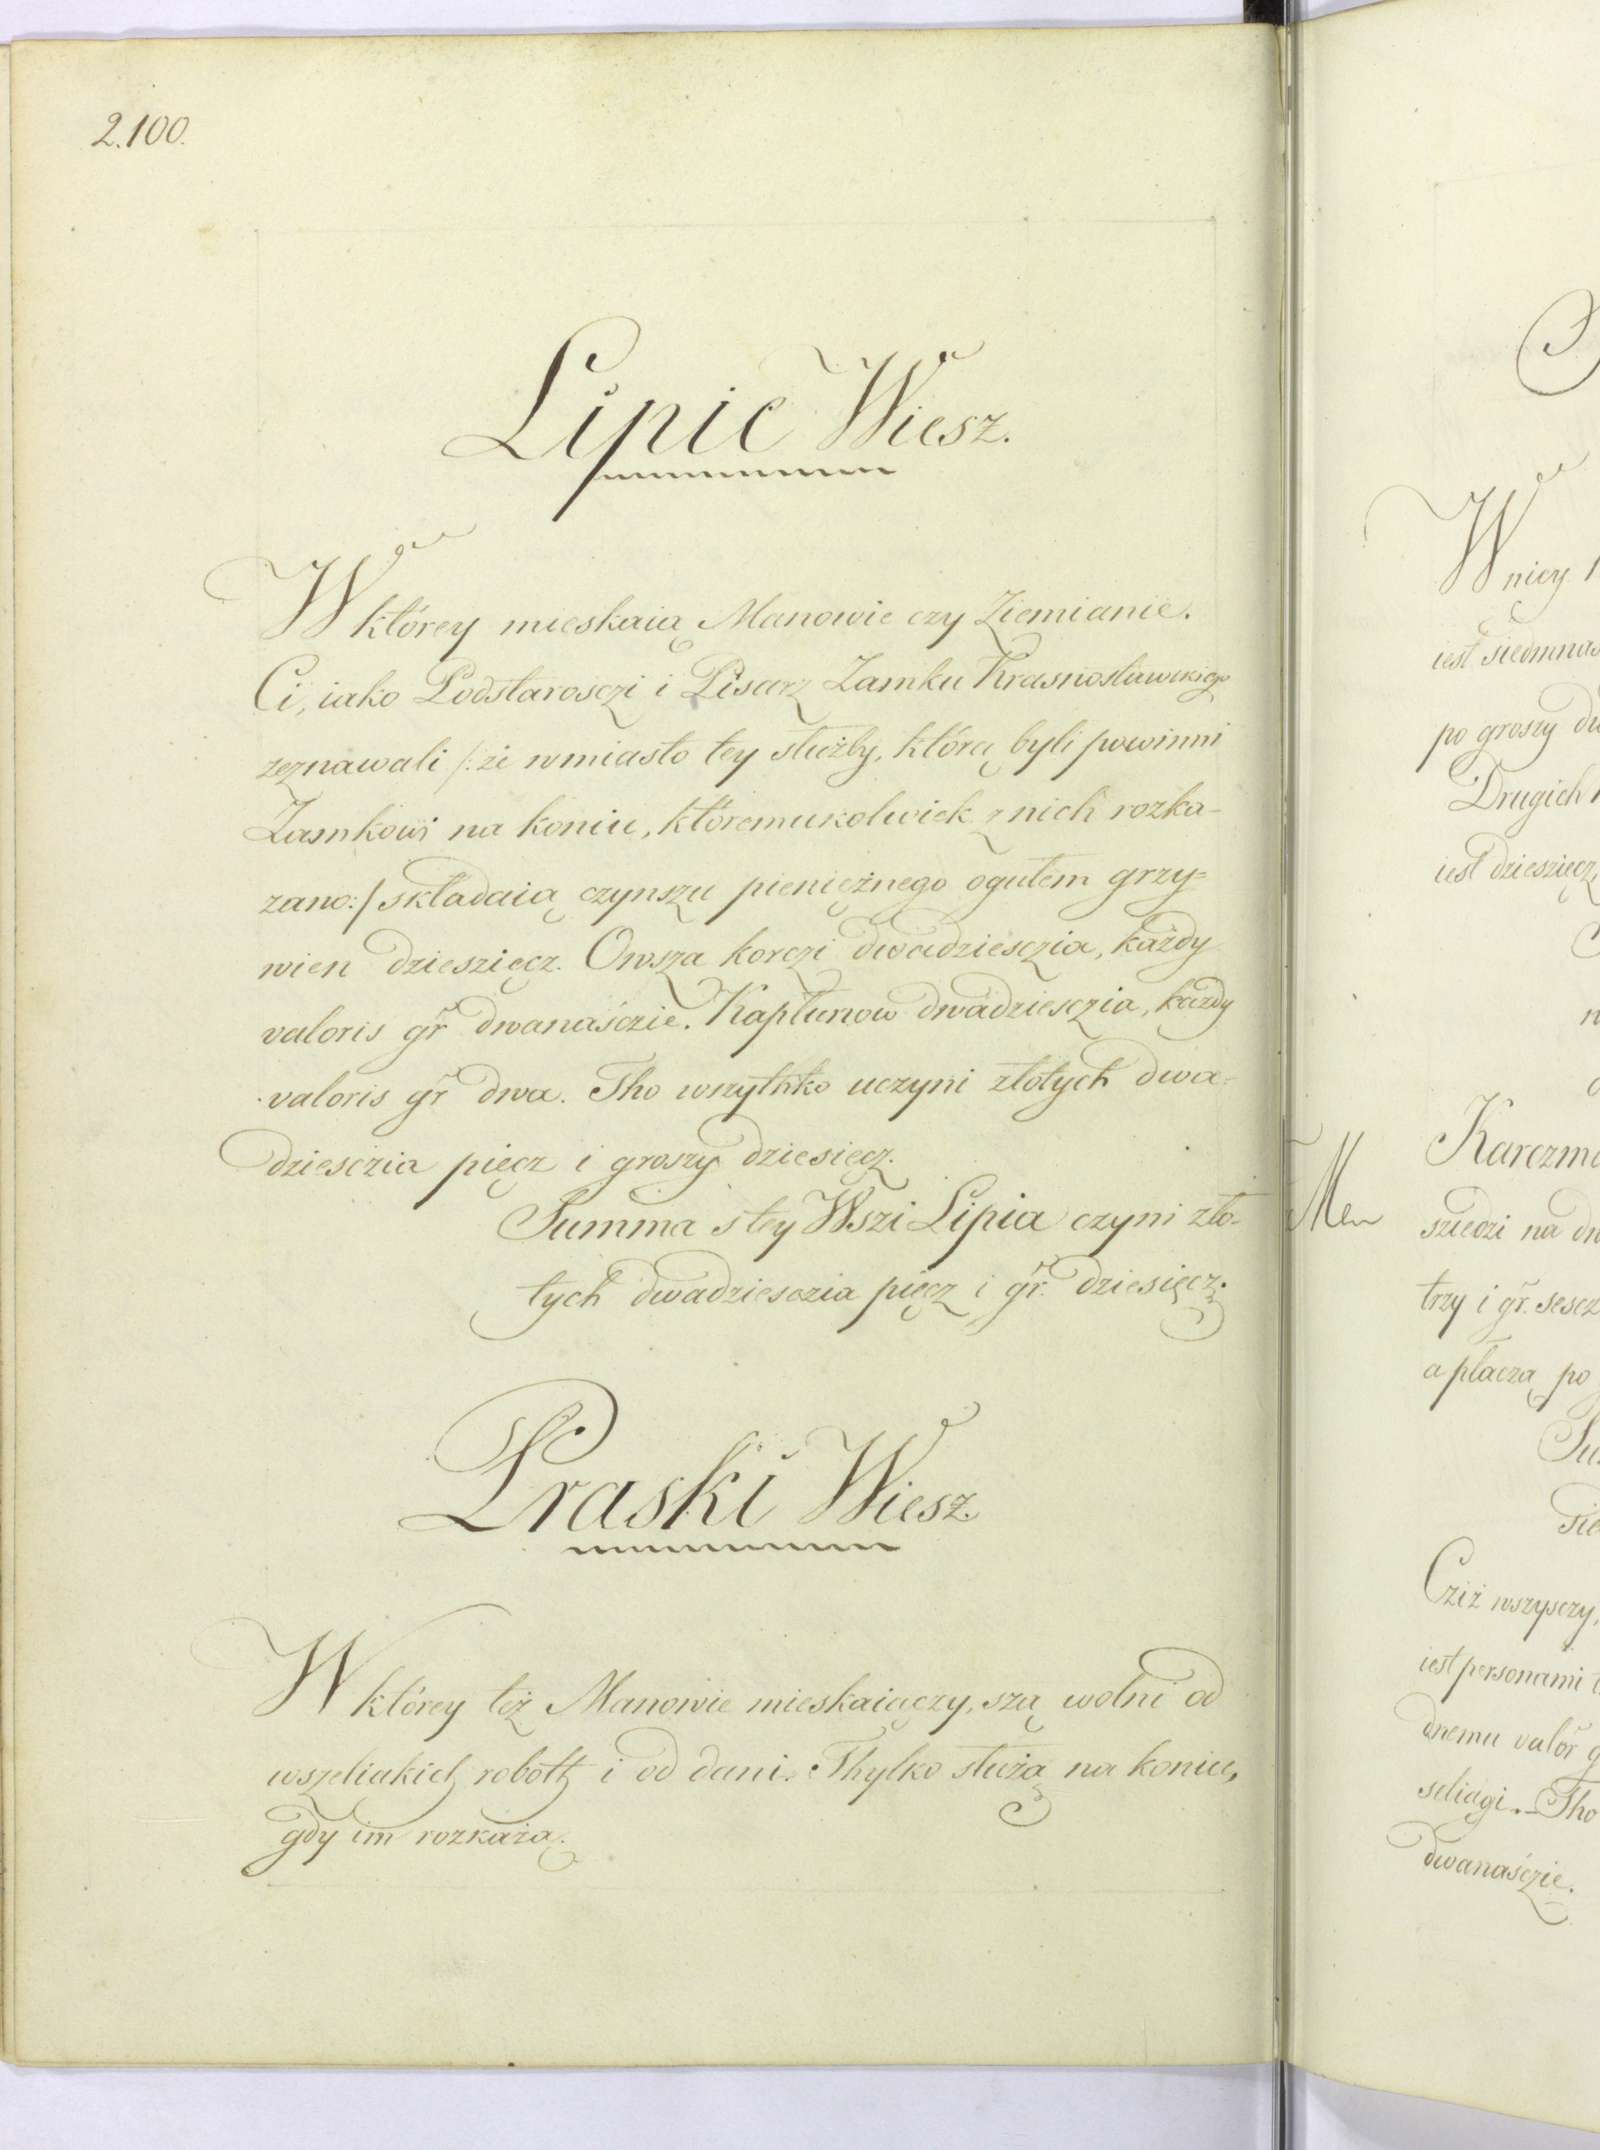 2.100.
Lipie Wiesz.
W którey mieskaią Manowie czy Ziemianie.
Ci, iako Podstarosczi i Pisarz Zamku Krasnosławskiego
zeznawali /: że wmiasto tey służby, którą byli powinni
Zamkowi na koniu, któremukolwiek z nich rozka-
zano:/ składaią czynszu pieniężnego ogułem grzy=
wien dzieszięcz. Owsza korczi dwadziesczia, każdy
valoris gr dwanaśczie. Kapłunow dwadziesczia, każdy
valoris gr dwa. Tho wszythko uczyni złotych dwa=
dziesczia pięcz i groszy dziesięcz.
Summa s tey Wszi Lipia czyni zło-
tych dwadziesczia pięcz i gr. dziesięcz.
Praski Wiesz.
W którey też Manowie mieskaiączy, szą wolni od
wszeliakich robotħ i od dani. Thylko służą na koniu,
gdy im rozkażą.
W niey
iest siedmnas
po groszy dw
Drugich
iest dzieszięcz,
Karczma
sziedzi na dw
trzy i gr. sescz
a płaczą po
Su
sie
Cziż wszysczy,
iest personami
dnemu valor g
seliągi. Tho
dwanaśczie.